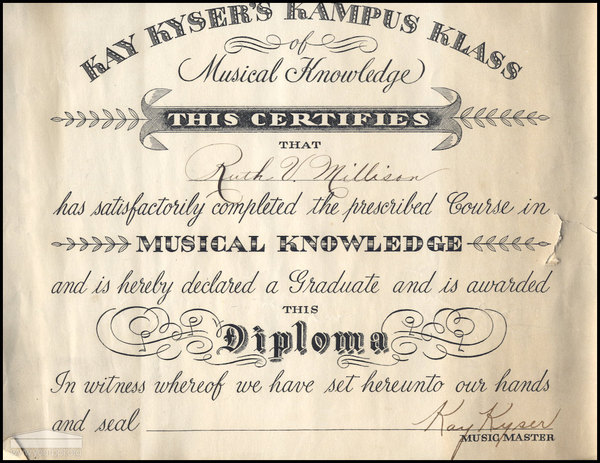 KAY KYSER'S KAMPUS KLASS
of
Musical Knowledge
THIS CERTIFIES
THAT
Ruth V. Millison
has satisfactorily completed the prescribed Course in
MUSICAL KNOWLEDGE
and is hereby declared a Graduate and is awarded
THIS
Diploma
In witness whereof we have set hereunto our hands
and seal Kay Kyser
MUSIC MASTER